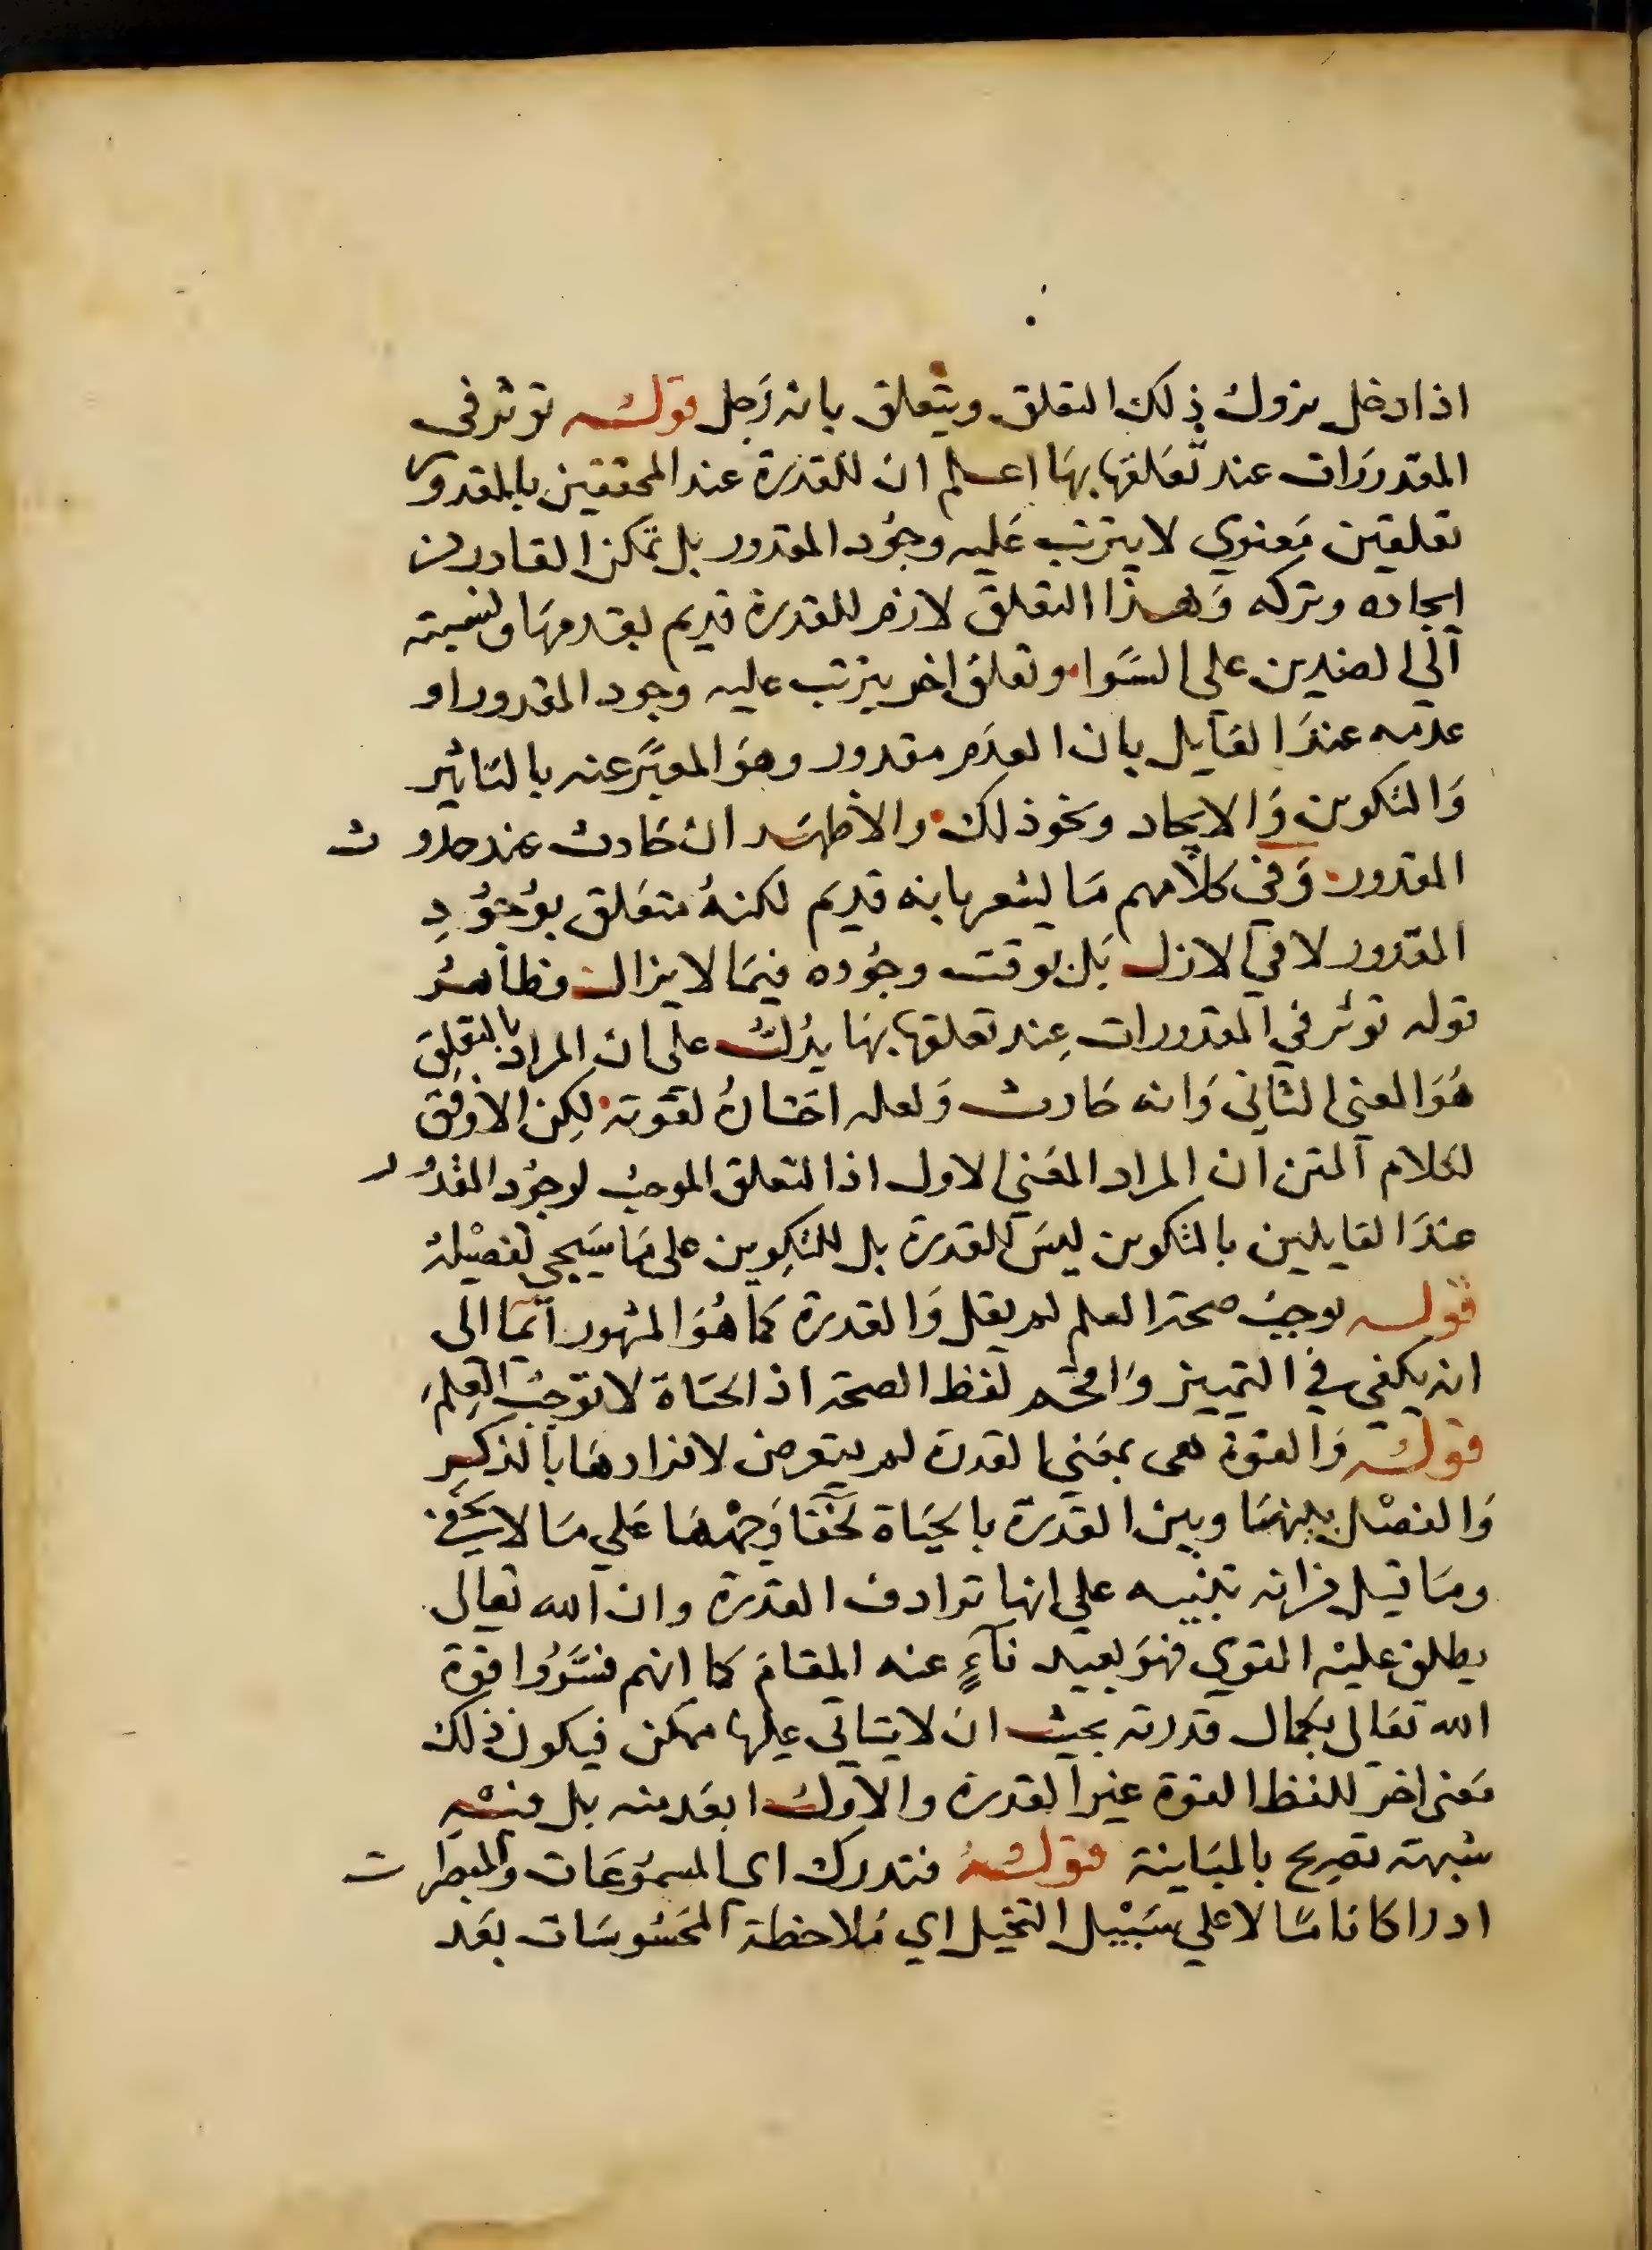 اذا دخل يزول ذلك التعلق ويتعلق بانه رجل قوله توثر فى
المقدورات عند تعلقها بها اعلم ان للقدرة عند المحققين بالمقدور
تعلقين معنوي لا يترتب عليه وجود المقدور بل تمكن القادر من
ايجاده وتركه وهذا التعلق لازم للقدرة قديم بقدمها ونسبته
الي الضدين علي السوا وتعلق اخر يترتب عليه وجود المقدور او
عدمه عند القايل بان العدم مقدور وهو المعبر عنه بالتاثير
والتكوين والايجاد ونحو ذلك والاظهر انه حادث عند حدوث
المقدور وفي كلامهم ما يشعر بانه قديم لكنه متعلق بوجود
المقدور لا في الازل بل بوقت وجوده فيما لا يزال وظاهر
قوله توثر في المقدورات عند تعلقها بها يدل على ان المراد بالتعلق
هو المعني الثاني وانه حادث ولعله اختاره لقوته لكن الاوفق
لكلام المتن ان المراد المعني الاول اذ التعلق الموجب لوجود المقدور
عند القايلين بالتكوين ليس للقدرة بل للتكوين على ما سيجي تفصيله
قوله يوجب صحة العلم لم يقل والقدرة كما هو المشهور ايما الى
انه يكفي في التمييز واقحم لفظ الصحة اذ الحياة لا توجب العلم
قوله والقوة هى بمعني القدرة لم يتعرض لافرادها بالذكر
والفصل بينها وبين القدرة بالحياة لخفا وجههما علي ما لا يخفى
وما قيل من انه تنبيه علي انها ترادف القدرة وان الله تعالى
يطلق عليه القوي فهو بعيد نآءٍ عنه المقام كما انهم فسروا قوة
الله تعالى بكمال قدرته بحيث ان لا يتاتى عليها ممكن فيكون ذلك
معنى اخر للفظ القوة غير القدرة والاول ابعد منه بل فيه
شبهة تصريح بالمباينة قوله فتدرك اي المسموعات والمبصرات
ادراكا تاما لا علي سبيل التخيل اي ملاحظة المحسوسات بعد